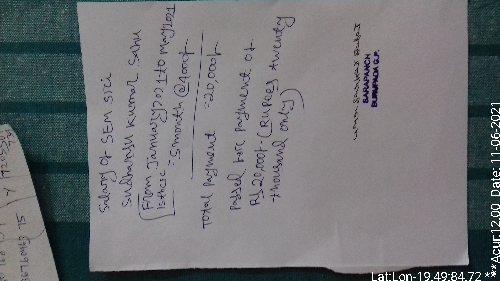 Salary of SEM Sici
Sudhansu Kumar Sahu
From January 2021 to May 2021
is there = 5 month @ 4000/-
Total payment = 20,000/-
Passed for payment of
Rs 20,000/- (Rupees twenty
thousand only)
SARAPANCH
BURUPADA G.P.
Lat:Lon-19.49:84.72 ***Acur12.00 Date:11-06-2021